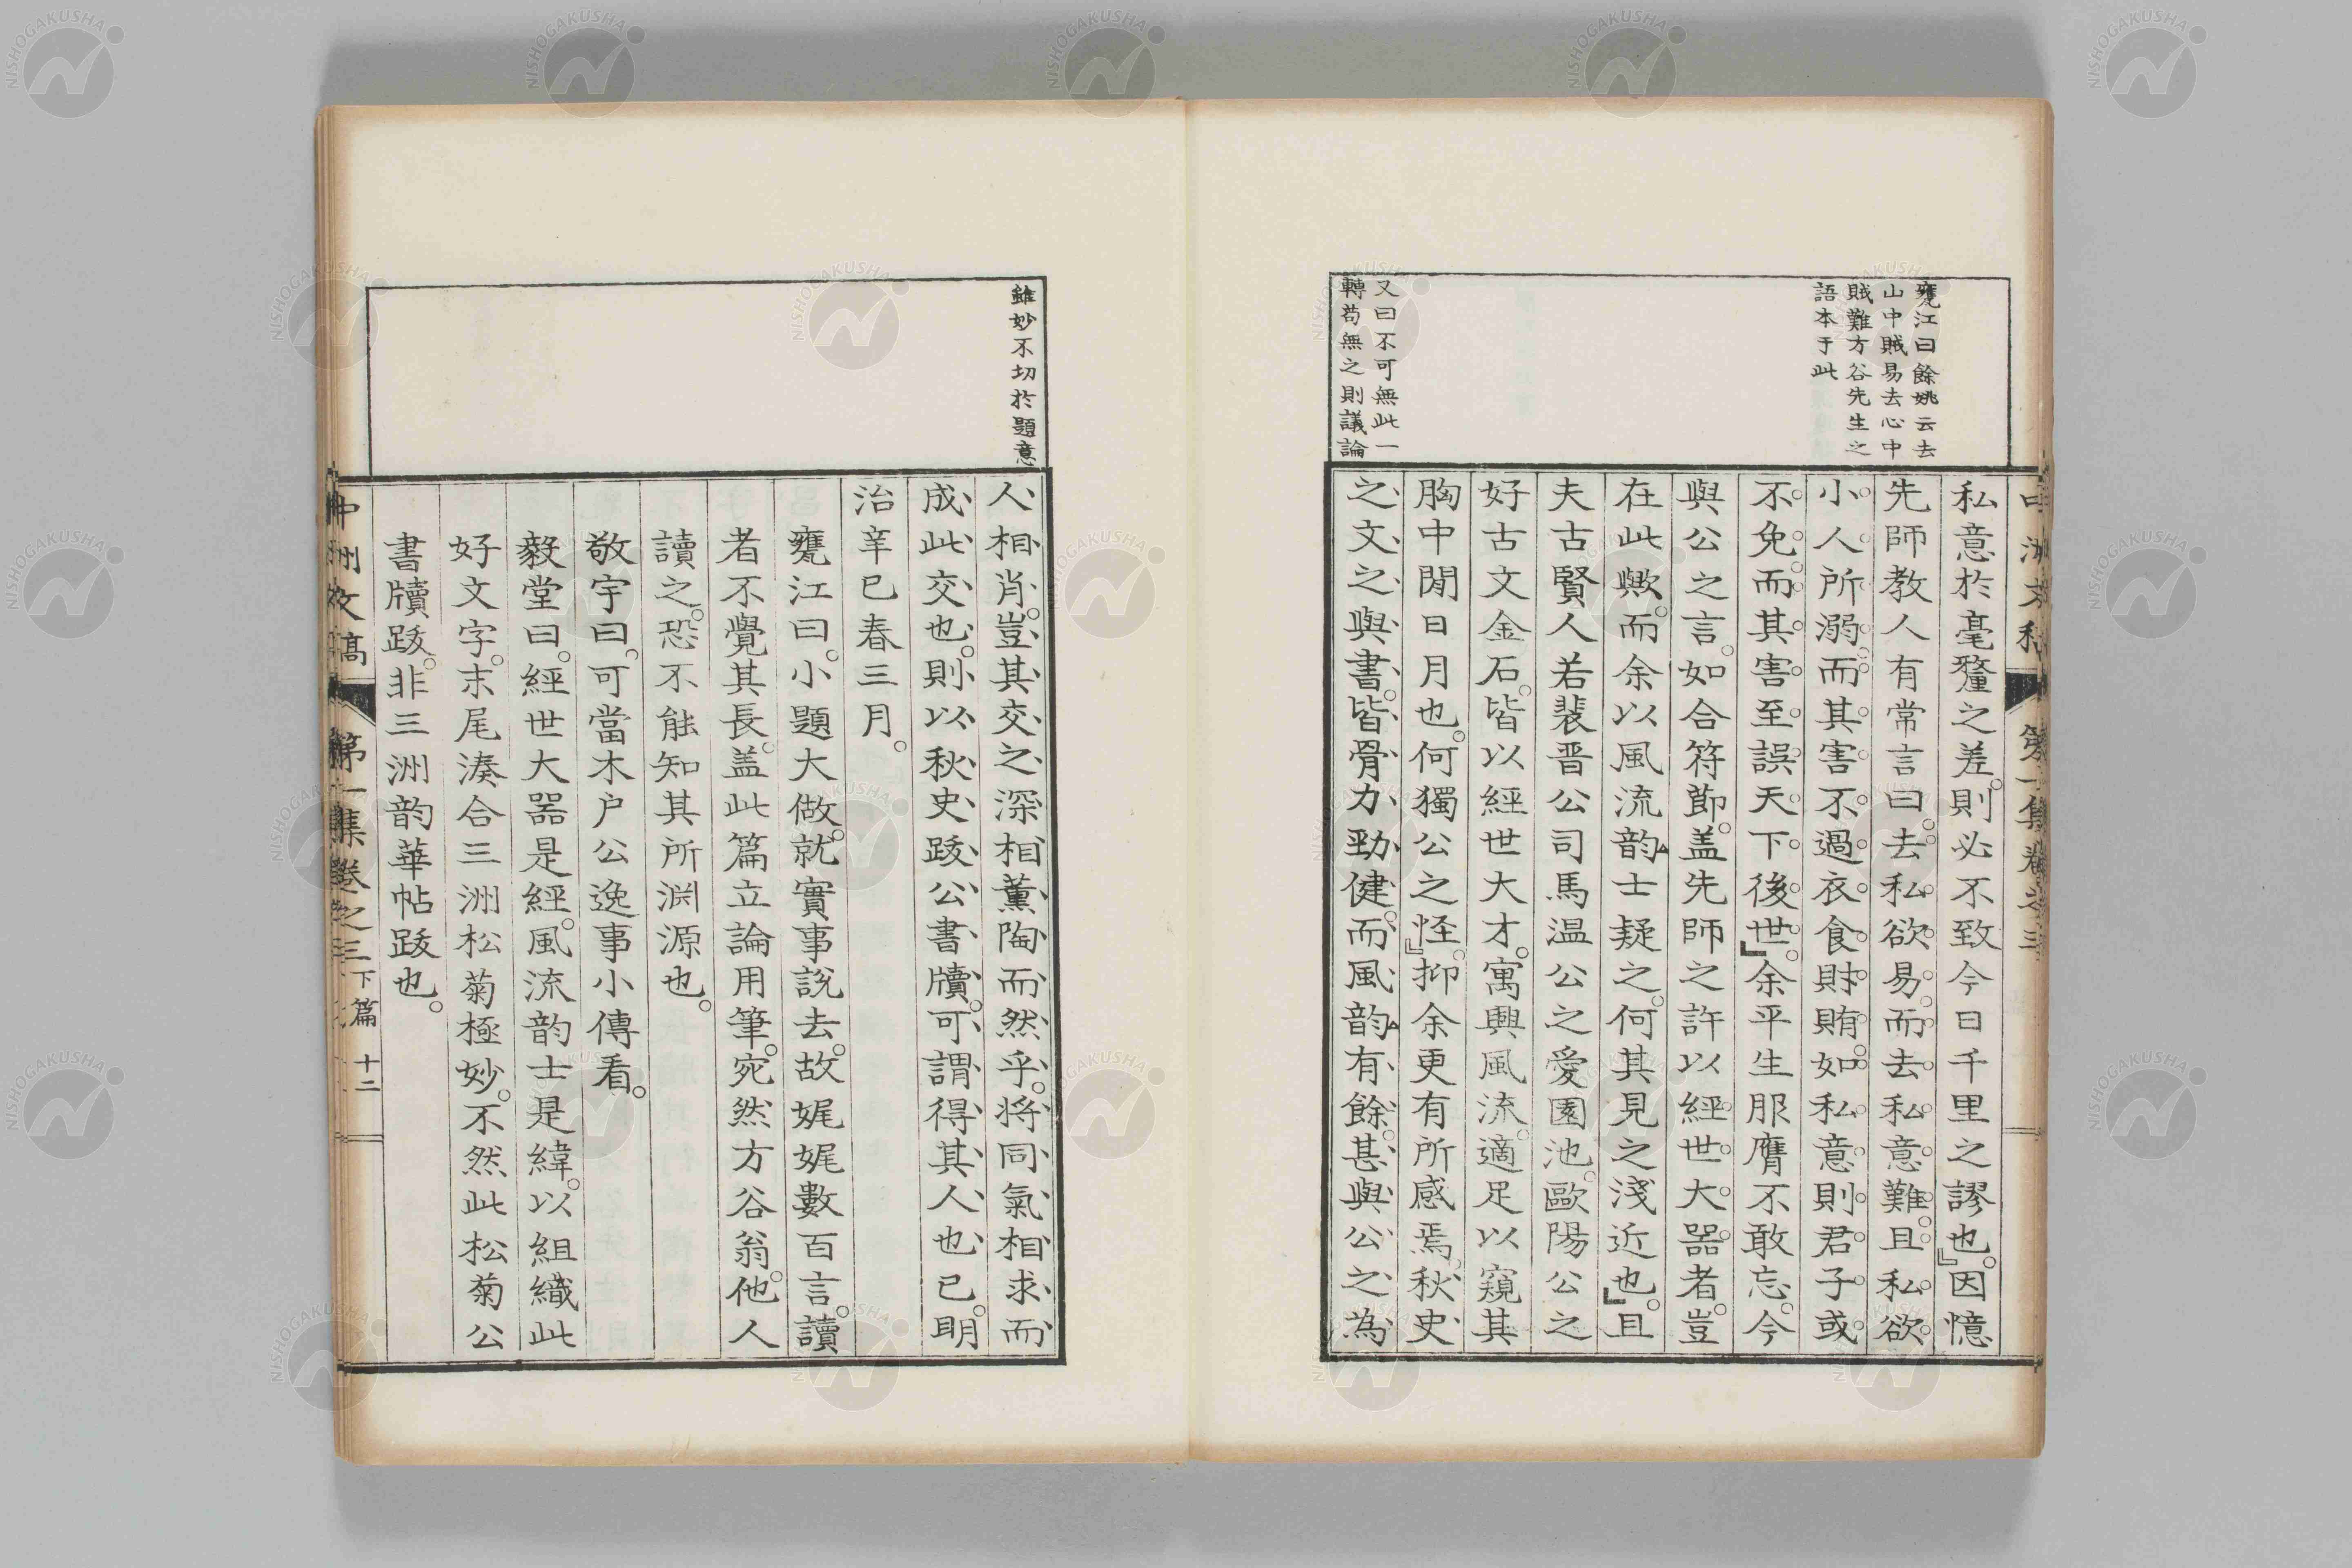 甕江曰餘姚云去
山中賊易去心中
賊難方谷先生之
語本于此
又曰不可無此一
轉苟無之則議論
私意於毫釐之差。則必不致今日千里之謬也。』因憶
先師教人有常言曰。去私欲易。而去私意難。且私欲。
小人所溺。而其害不過衣食財賄。如私意則君子或
不免。而其害至誤天下後世。』余平生服膺不敢忘。今
與公之言。如合符節。盖先師之許以經世大器者。豈
在此歟。而余以風流韵士疑之。何其見之淺近也。』且
夫古賢人若裴晋公司馬温公之愛園池。歐陽公之
好古文金石。皆以經世大才。寓興風流。適足以窺其
胸中閒日月也。何獨公之怪。』抑余更有所感焉。秋史
之文之與書。皆骨力勁健。而風韵有餘。甚與公之為
雖妙不切於題意
人相肖。豈其交之深相薫陶而然乎。將同氣相求而
成此交也。則以秋史跋公書牘。可謂得其人也已。明
治辛巳春三月。
甕江曰。小題大做。就實事說去。故娓娓數百言。讀
者不覺其長。盖此篇立論用筆。宛然方谷翁。他人
讀之。恐不能知其所渊源也。
敬宇曰。可當木户公逸事小傳看。
毅堂曰。經世大器是經。風流韵士是緯。以組織此
好文字。末尾湊合三洲松菊極妙。不然此松菊公
書牘跋。非三洲韵華帖跋也。
中洲文稿
第一集卷之三下篇
十二
NISHOGAKUSHA